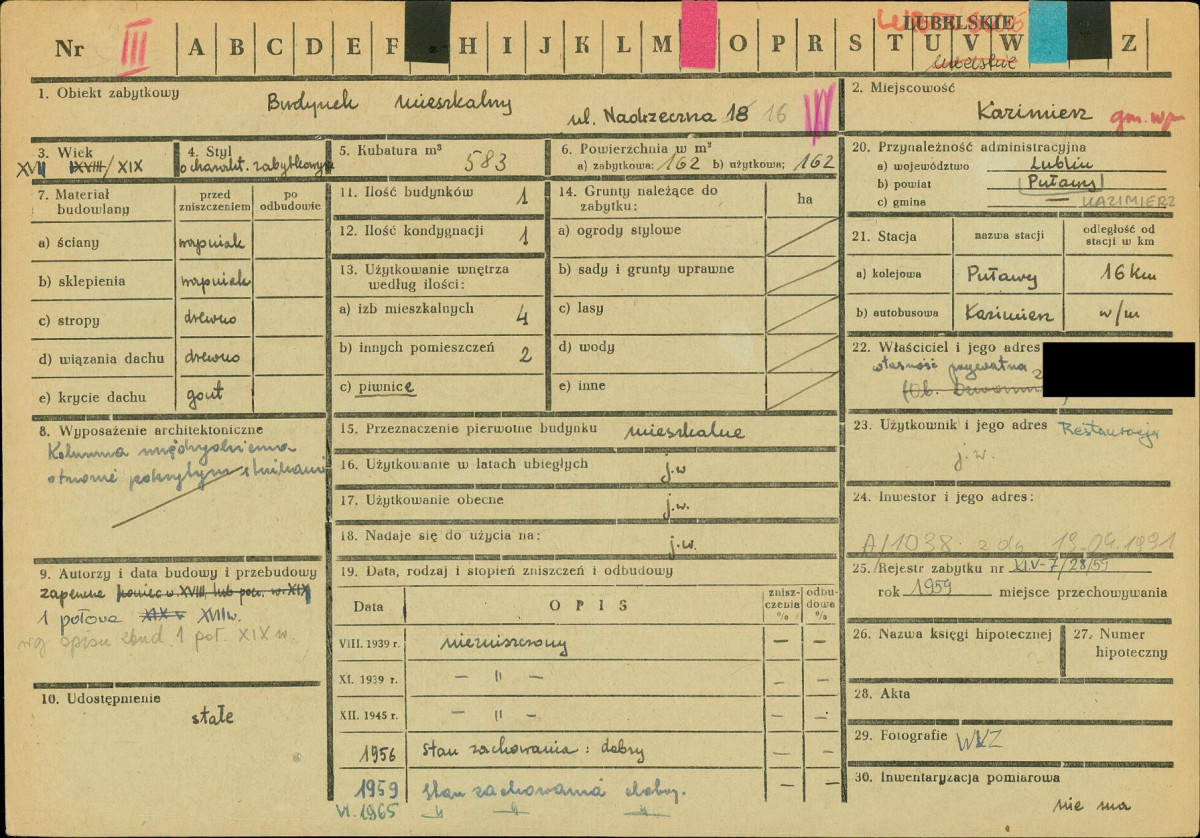 Nr III A B C D E F H I J K L M O P R S T U V W Z
LUBELSKIE
lubelskie
1. Obiekt zabytkowy Budynek mieszkalny
ul. Nadrzeczna 18 16
2. Miejscowość
Kazimierz gm. w/m
3. Wiek
XVII XVIII/XIX
4. Styl
o charakt. zabytkowym
5. Kubatura m³ 583
6. Powierzchnia w m²
a) zabytkowa: 162 b) użytkowa: 162
7. Materiał budowlany
przed zniszczeniem
po odbudowie
a) ściany wapniak
b) sklepienia wapniak
c) stropy drewno
d) wiązania dachu drewno
e) krycie dachu gont
8. Wyposażenie architektoniczne
Kolumna międzyokienna
otwarte
9. Autorzy i data budowy i przebudowy
zapewne koniec w. XVIII lub pocz. w. XIX
1 połowa XIX w XVII w.
wg opisu zbud. 1 poł. XIX w.
10. Udostępnienie
stałe
11. Ilość budynków 1
12. Ilość kondygnacji 1
13. Użytkowanie wnętrza
według ilości:
a) izb mieszkalnych 4
b) innych pomieszczeń 2
c) piwnice
14. Grunty należące do
zabytku:
ha
a) ogrody stylowe
b) sady i grunty uprawne
c) lasy
d) wody
e) inne
15. Przeznaczenie pierwotne budynku mieszkalne
16. Użytkowanie w latach ubiegłych j.w
17. Użytkowanie obecne j.w.
18. Nadaje się do użycia na: j.w.
19. Data, rodzaj i stopień zniszczeń i odbudowy
Data
OPIS
znisz-
czenia
%
odbu-
dowa
%
VIII. 1939 r. niezniszczony — —
XI. 1939 r. — " — — —
XII. 1945 r. — " — — —
1956 stan zachowania: dobry — —
1959 stan zachowania dobry. — —
VI. 1965 " " "
20. Przynależność administracyjna
a) województwo Lublin
b) powiat Puławy
c) gmina — KAZIMIERZ
21. Stacja
nazwa stacji
odległość od
stacji w km
a) kolejowa Puławy 16 km
b) autobusowa Kazimierz w/m
22. Właściciel i jego adres
własność prywatna
23. Użytkownik i jego adres Restauracja
j.w.
24. Inwestor i jego adres:
A/1038 z dn 19.04.1991
25. Rejestr zabytku nr XI.V-7/28/59
rok 1959 miejsce przechowywania
26. Nazwa księgi hipotecznej
27. Numer
hipoteczny
28. Akta
29. Fotografie WKZ
30. Inwentaryzacja pomiarowa
nie ma